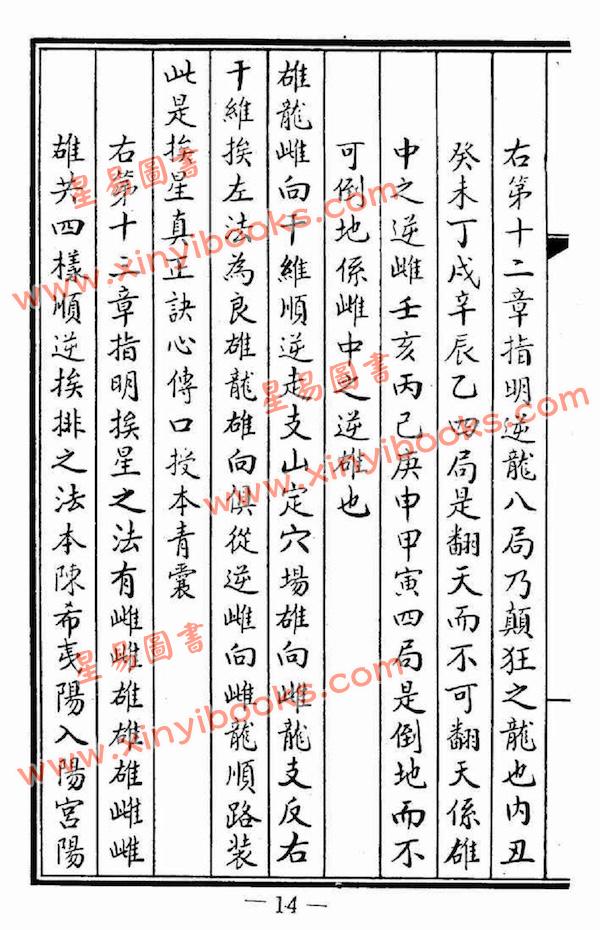 右第十二章指明逆龍八局乃顛狂之龍也內丑
癸未丁戌辛辰乙四局是翻天而不可翻天係雄
中之逆雌壬亥丙巳庚申甲寅四局是倒地而不
可倒地係雌中之逆雄也
雄龍雌向干維順逆走支山定穴場雄向雌龍支反右
干維挨左法為良雄龍雄向俱從逆雌向雌龍順路裝
此是挨星真正訣心傳口授本青囊
右第十二章指明挨星之法有雌雌雄雄雄雌雌
雄共四樣順逆挨排之法本陳希夷陽入陽宮陽
— 14 —
星易圖書
www.xinyibooks.com
星易圖書
www.xinyibooks.com
星易圖書
www.xinyibooks.com